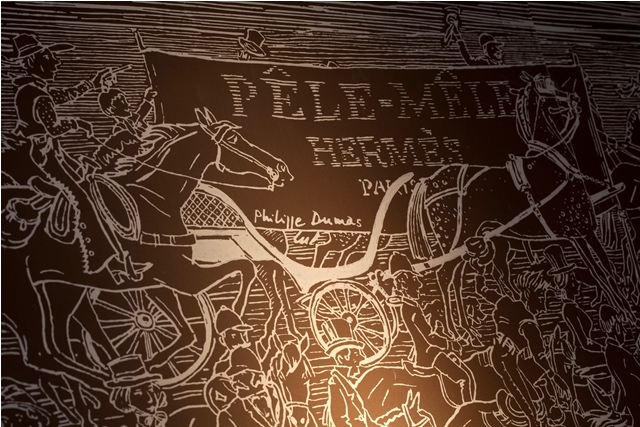 PÊLE-MÊLE
HERMÈS
PARIS
Philippe Dumas